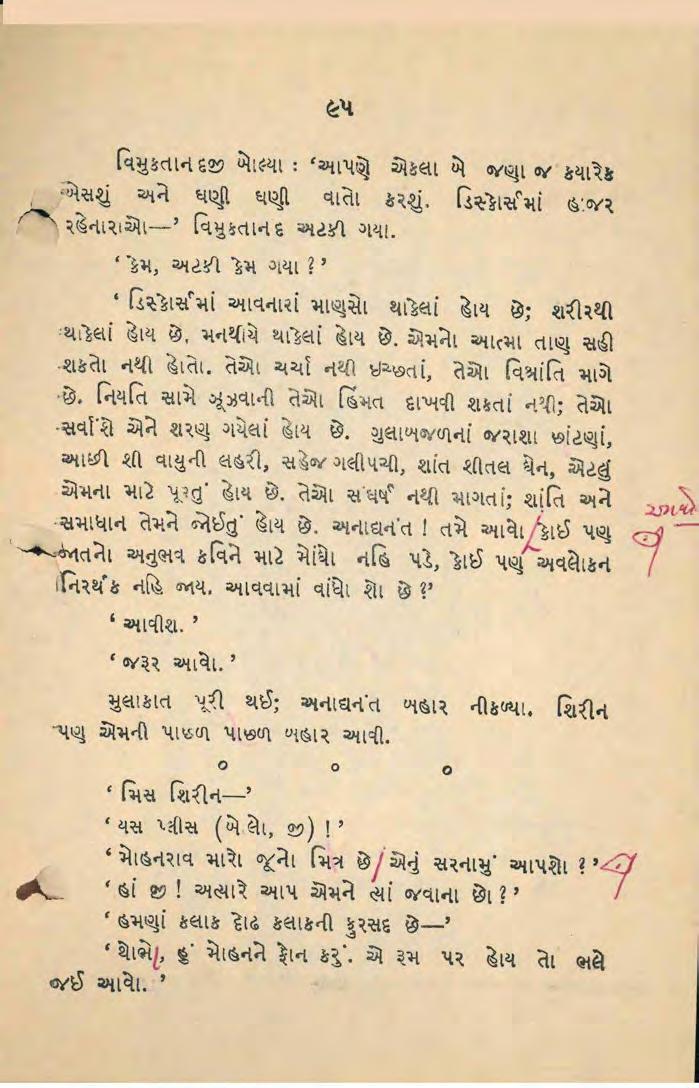 ૯૫
વિમુકતાનંદજી બોલ્યા : ‘આપણે એકલા બે જણા જ કયારેક
બેસશું અને ઘણી ઘણી વાતો કરશું. ડિસ્કોર્સમાં હાજર
રહેનારાઓ—’ વિમુકતાનંદ અટકી ગયા.
‘ કેમ, અટકી કેમ ગયા ? ’
‘ ડિસ્કોર્સમાં આવનારાં માણસો થાકેલાં હોય છે; શરીરથી
થાકેલાં હોય છે, મનથીયે થાકેલાં હોય છે. એમનો આત્મા તાણ સહી
શકતો નથી હોતો. તેઓ ચર્ચા નથી ઇચ્છતાં, તેઓ વિશ્રાંતિ માગે
છે. નિયતિ સામે ઝૂઝવાની તેઓ હિંમત દાખવી શકતાં નથી; તેઓ
સર્વાંશે એને શરણ ગયેલાં હોય છે. ગુલાબજળનાં જરાશા છાંટણાં,
આછી શી વાયુની લહરી, સહેજ ગલીપચી, શાંત શીતલ ઘેન, એટલું
એમના માટે પૂરતું હોય છે. તેઓ સંઘર્ષ નથી માગતાં; શાંતિ અને
સમાધાન તેમને જોઈતું હોય છે. અનાદ્યનંત ! તમે આવો કોઈ પણ
જાતનો અનુભવ કવિને માટે મોંઘો નહિ પડે, કોઈ પણ અવલોકન
નિરર્થક નહિ જાય. આવવામાં વાંધો શો છે ?’
‘ આવીશ. ’
‘ જરૂર આવો. ’
મુલાકાત પૂરી થઈ; અનાદ્યનંત બહાર નીકળ્યા. શિરીન
પણ એમની પાછળ પાછળ બહાર આવી.
૦ ૦ ૦
‘ મિસ શિરીન—’
‘ યસ પ્લીસ (બોલો, જી) ! ’
‘ મોહનરાવ મારો જૂનો મિત્ર છે એનું સરનામું આપશો ? ’
‘ હાં જી ! અત્યારે આપ એમને ત્યાં જવાના છો ? ’
‘ હમણાં કલાક દોઢ કલાકની ફુરસદ છે—’
‘ થોભો, હું મોહનને ફોન કરું. એ રૂમ પર હોય તો ભલે
જઈ આવો. ’